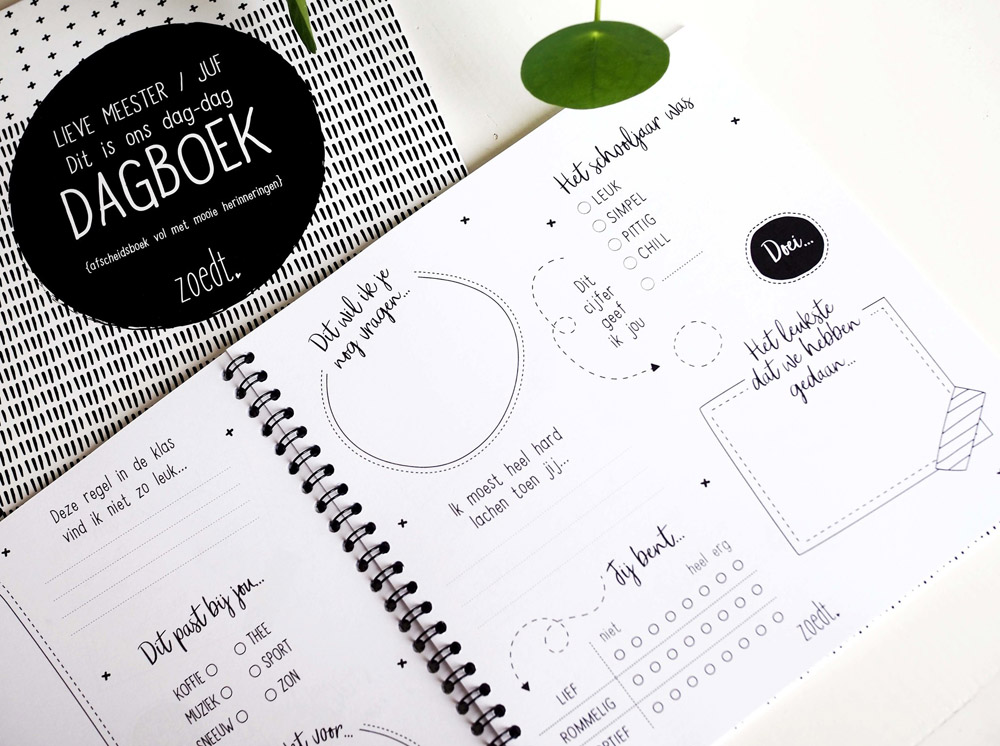 LIEVE MEESTER / JUF
Dit is ons dag-dag
DAGBOEK
{afscheidsboek vol met mooie herinneringen}
zoedt.
Deze regel in de klas
vind ik niet zo leuk...
Dit past bij jou...
KOFFIE THEE
MUZIEK SPORT
SNEEUW ZON
voor...
Dit wil ik je
nog vragen...
Het schooljaar was
LEUK
SIMPEL
PITTIG
CHILL
Dit
cijfer
geef
ik jou
Doei...
Het leukste
dat we hebben
gedaan...
Ik moest heel hard
lachen toen jij...
Jij bent...
niet heel erg
LIEF
ROMMELIG
zoedt.